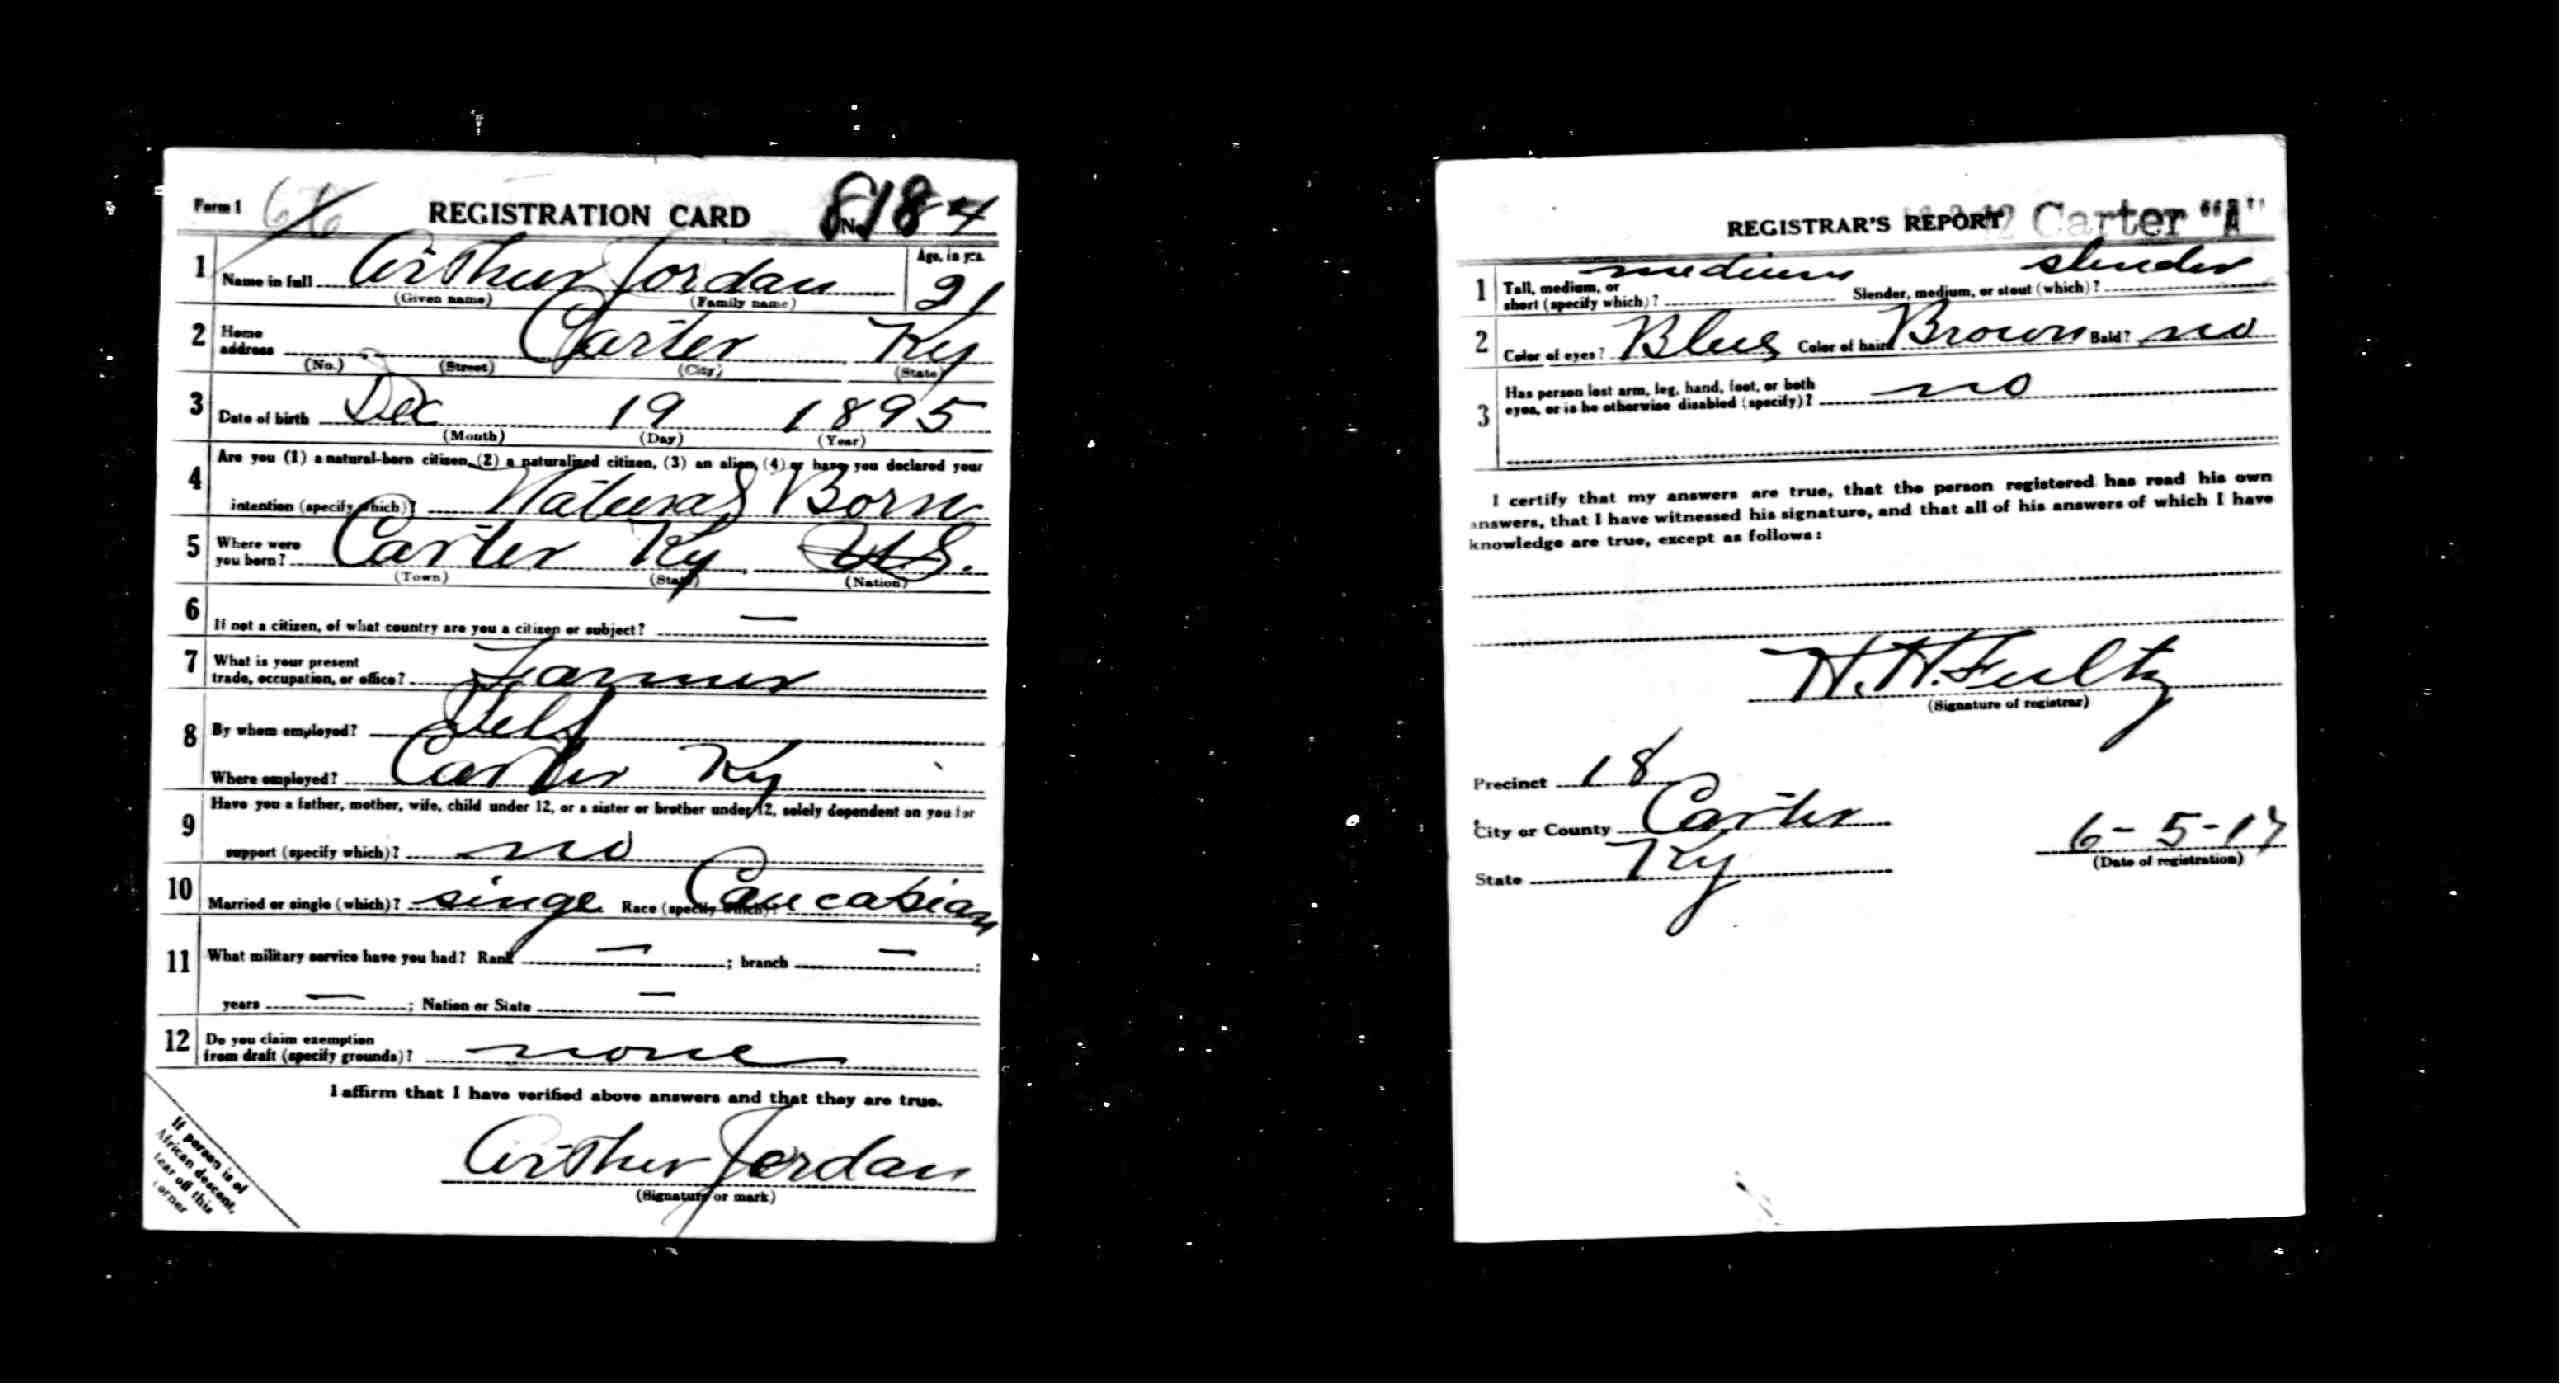 Form 1 REGISTRATION CARD No. 8184
1 Name in full Arthur Jordan Age, in yrs. 21
(Given name) (Family name)
2 Home address Carter Ky
(No.) (Street) (City) (State)
3 Date of birth Dec 19 1895
(Month) (Day) (Year)
4 Are you (1) a natural-born citizen, (2) a naturalized citizen, (3) an alien, (4) or have you declared your
intention (specify which)? Natural Born
5 Where were you born? Carter Ky, U.S.
(Town) (State) (Nation)
6 If not a citizen, of what country are you a citizen or subject? —
7 What is your present
trade, occupation, or office? Farmer
8 By whom employed? Self
Where employed? Carter Ky
9 Have you a father, mother, wife, child under 12, or a sister or brother under 12, solely dependent on you for
support (specify which)? no
10 Married or single (which)? singe Race (specify which)? Caucasian
11 What military service have you had? Rank — ; branch — ;
years — ; Nation or State —
12 Do you claim exemption
from draft (specify grounds)? none
I affirm that I have verified above answers and that they are true.
Arthur Jordan
(Signature or mark)
If person is of
African descent,
tear off this
corner
REGISTRAR'S REPORT Carter "A"
1 Tall, medium, or
short (specify which)? medium Slender, medium, or stout (which)? slender
2 Color of eyes? Blue Color of hair? Brown Bald? no
3 Has person lost arm, leg, hand, foot, or both
eyes, or is he otherwise disabled (specify)? no
I certify that my answers are true, that the person registered has read his own
answers, that I have witnessed his signature, and that all of his answers of which I have
knowledge are true, except as follows:
H. H. Fultz
(Signature of registrar)
Precinct 18
City or County Carter
State Ky
6-5-17
(Date of registration)